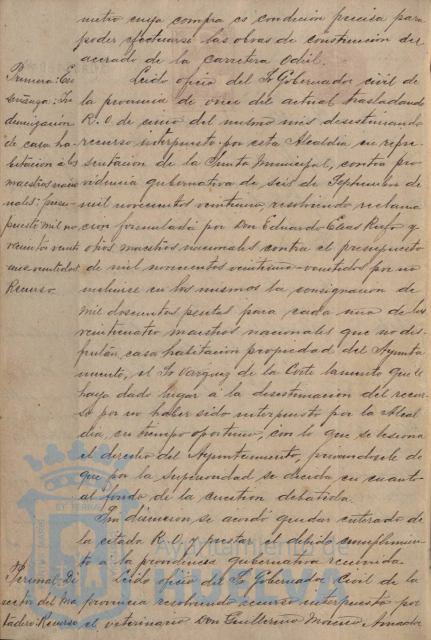 metro cuya compra es condición precisa para
poder efectuarse las obras de construcción del
acerado de la carretera Odiel.
Primera: En
señanza: In
demnización
de casa ha-
bitación a los
maestros nacio
nales: presu-
puesto mil no
vecientos veinti
uno veintidos
Recurso.
Leido oficio del Sr Gobernador civil de
la provincia de once del actual trasladando
R. O. de cinco del mismo mes desestimando
recurso interpuesto por esta Alcaldía en repre-
sentación de la Junta Municipal, contra pro
videncia gubernativa de seis de Septiembre de
mil novecientos veintiuno, resolviendo reclama
ción formulada por Don Eduardo Elias Riofo y
otros maestros nacionales contra el presupuesto
de mil novecientos veintiuno-veintidos por no
incluirse en los mismos la consignación de
mil doscientas pesetas para cada uno de los
veinticuatro maestros nacionales que no dis-
frutan casa habitación propiedad del Ayunta
miento, el Sr Vazquez de la Corte lamentó que se
haya dado lugar a la desestimación del recur
so por no haber sido interpuesto por la Alcal
día, en tiempo oportuno, con lo que se lesiona
el derecho del Ayuntamiento, privandosele de
que por la superioridad se decida en cuanto
al fondo de la cuestión debatida.
Sin discusión, se acordó quedar enterado de
la citada R. O. y prestar el debido cumplimien
to a la providencia gubernativa recurrida.
Personal: Di
rector del Ma
tadero: Recurso
Leido oficio del Sr Gobernador Civil de la
provincia resolviendo recurso interpuesto por
el veterinario Don Guillermo Moreno Amador
Ayuntamiento de
HUELVA